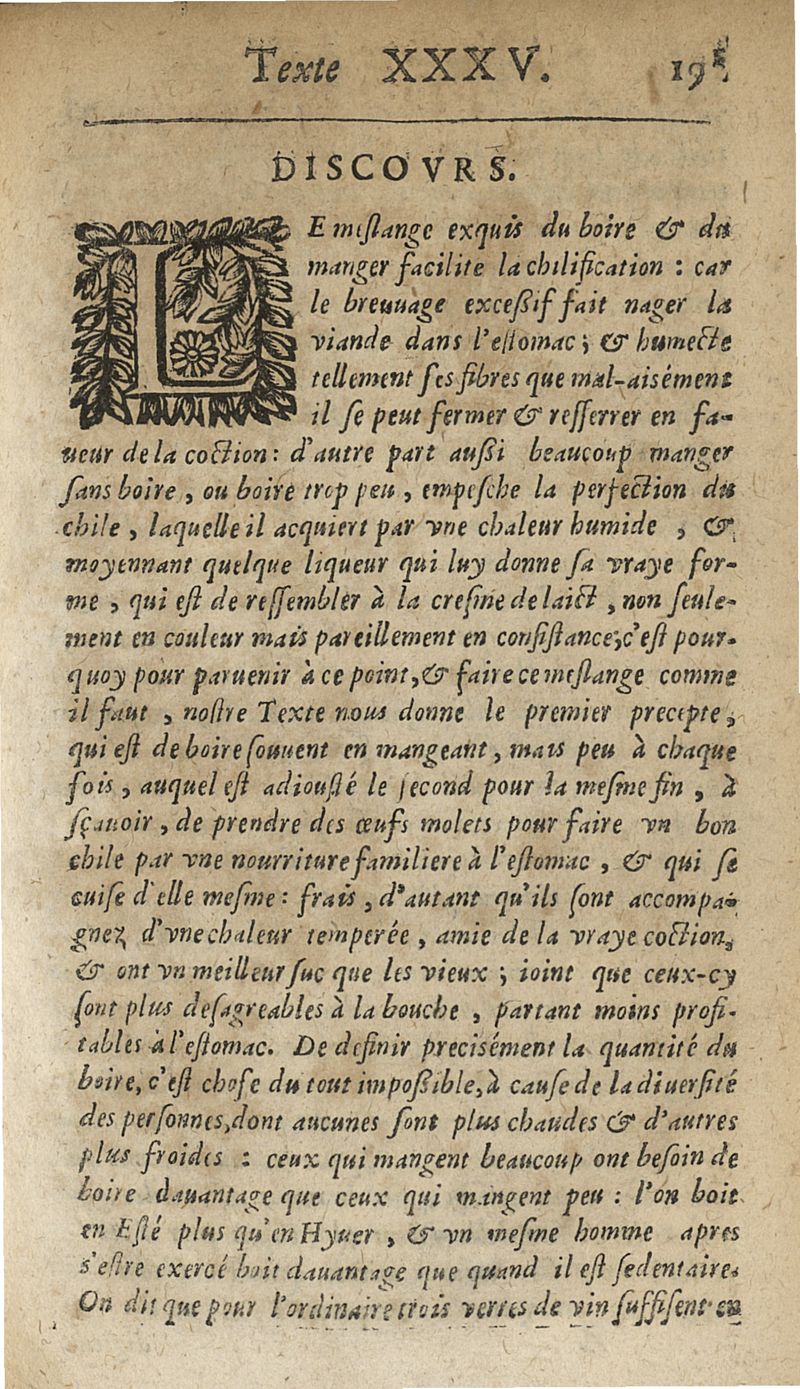 Texte XXXV. 19
DISCOVRS.
LE meſlange exquis du boire & du
manger facilite la chilification : car
le breuuage exceßif fait nager la
viande dans l'eſtomac ; & humecte
tellement ſes fibres que mal-aisément
il ſe peut fermer & reſſerrer en fa-
ueur de la coction : d'autre part außi beaucoup manger
ſans boire , ou boire trop peu , empeſche la perfection du
chile , laquelle il acquiert par vne chaleur humide , &
moyennant quelque liqueur qui luy donne ſa vraye for-
me , qui eſt de reſſembler à la creſme de laict , non ſeule-
ment en couleur mais pareillement en conſiſtance; c'eſt pour-
quoy pour paruenir à ce point, & faire ce meſlange comme
il faut , noſtre Texte nous donne le premier precepte,
qui eſt de boire ſouuent en mangeant, mais peu à chaque
fois , auquel eſt adiouſté le ſecond pour la meſme fin , à
ſçauoir , de prendre des œufs molets pour faire vn bon
chile par vne nourriture familiere à l'eſtomac , & qui ſe
cuiſe d'elle meſme : frais , d'autant qu'ils ſont accompa-
gnez d'vne chaleur temperée , amie de la vraye coction,
& ont vn meilleur ſuc que les vieux ; ioint que ceux-cy
ſont plus deſagreables à la bouche , partant moins profi-
tables à l'eſtomac. De definir preciſément la quantité du
boire, c'eſt choſe du tout impoßible, à cauſe de la diuerſité
des perſonnes, dont aucunes ſont plus chaudes & d'autres
plus froides : ceux qui mangent beaucoup ont beſoin de
boire dauantage que ceux qui mangent peu : l'on boit
en Eſté plus qu'en Hyuer , & vn meſme homme apres
s'eſtre exercé boit dauantage que quand il eſt ſedentaire.
On dit que pour l'ordinaire trois verres de vin ſuffiſent en